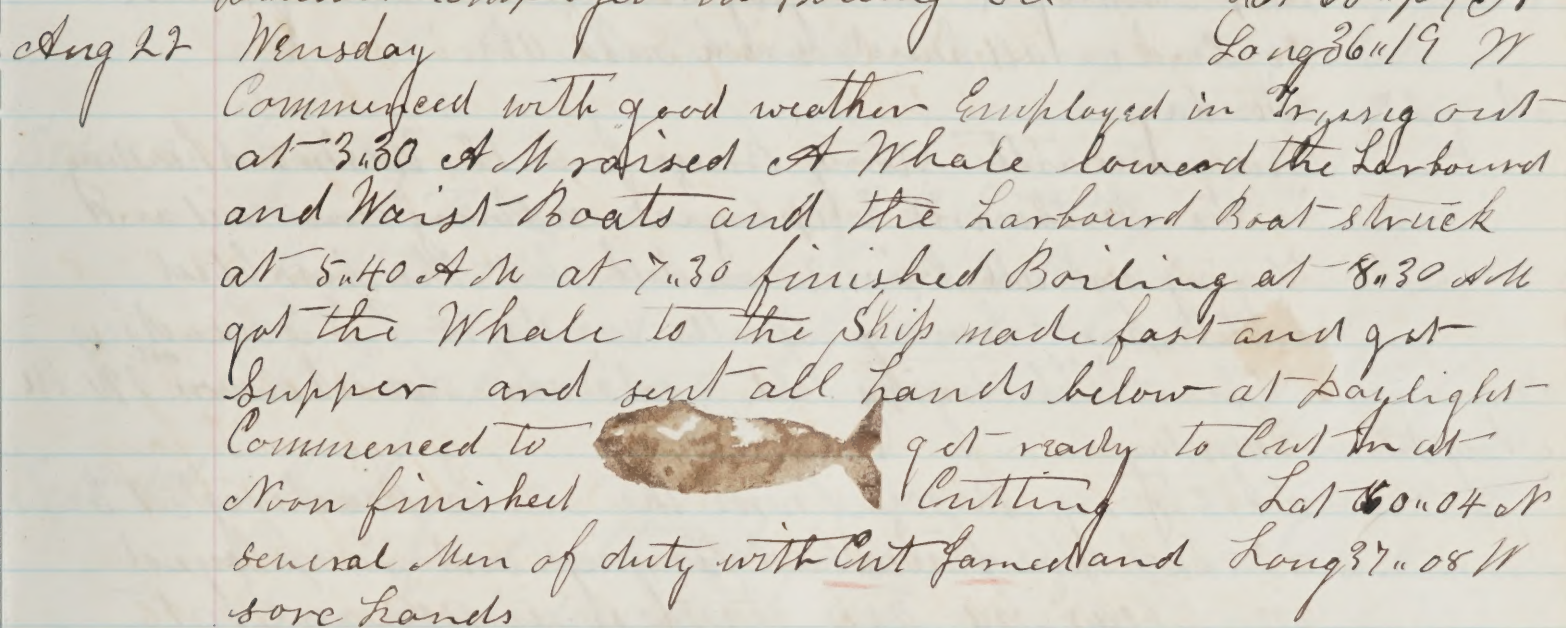 Aug 22 Wensday Long 36"19 W
Commenced with good weather Employed in Trying out
at 3"30 A M raised A Whale lowerd the Larbourd
and Waist Boats and the Larbourd Boat struck
at 5"40 A M at 7"30 finished Boiling at 8"30 AM
got the Whale to the Ship made fast and got
Supper and sent all hands below at Daylight
Commenced to get ready to Cut in at
Noon finished Cutting Lat 60"04 N
several Men of duty with Cut Jamed and Long 37"08 W
sore hands